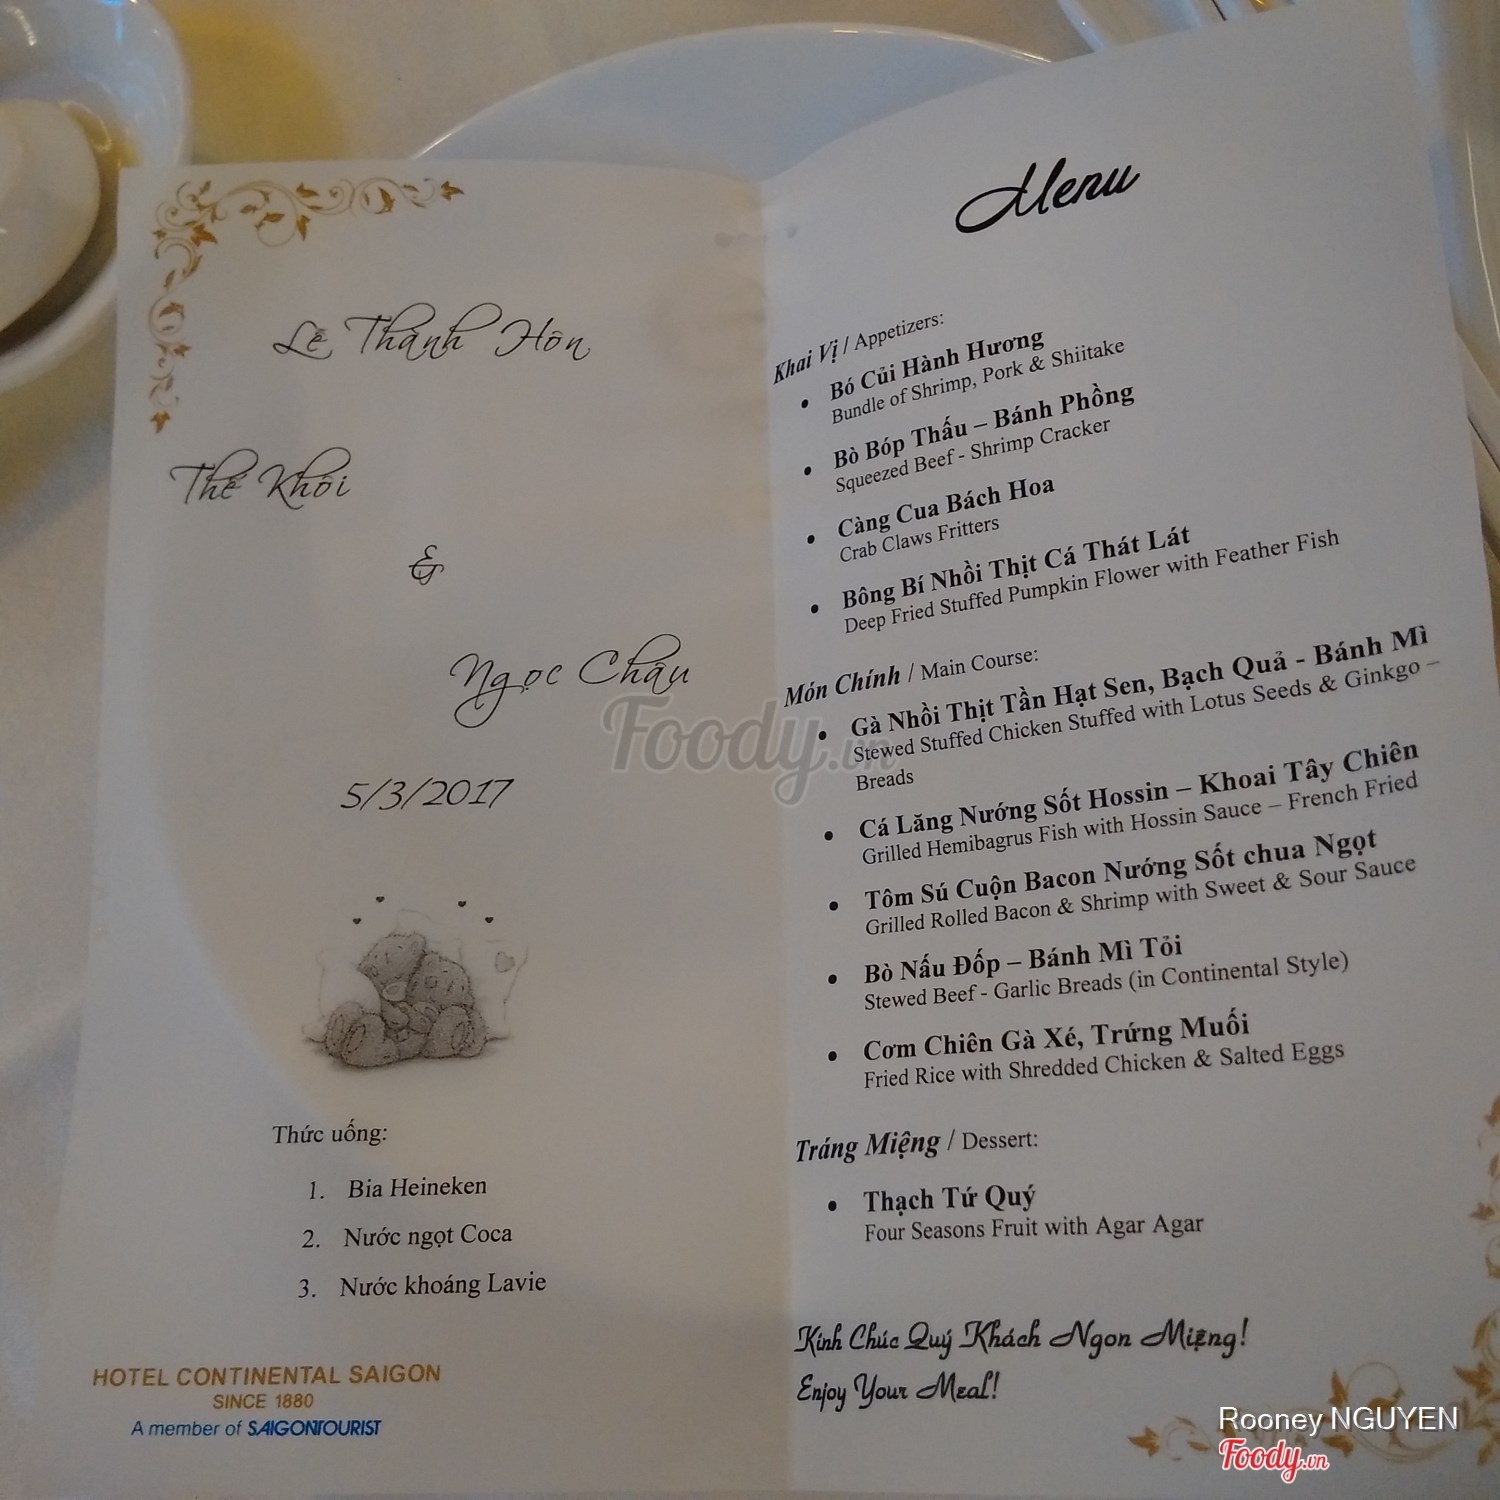 Lễ Thành Hôn
Thế Khôi
&
Ngọc Châu
5/3/2017
Thức uống:
1. Bia Heineken
2. Nước ngọt Coca
3. Nước khoáng Lavie
HOTEL CONTINENTAL SAIGON
SINCE 1880
A member of SAIGONTOURIST
Menu
Khai Vị / Appetizers:
• Bó Củi Hành Hương
Bundle of Shrimp, Pork & Shiitake
• Bò Bóp Thấu – Bánh Phồng
Squeezed Beef - Shrimp Cracker
• Càng Cua Bách Hoa
Crab Claws Fritters
• Bông Bí Nhồi Thịt Cá Thát Lát
Deep Fried Stuffed Pumpkin Flower with Feather Fish
Món Chính / Main Course:
• Gà Nhồi Thịt Tần Hạt Sen, Bạch Quả - Bánh Mì
Stewed Stuffed Chicken Stuffed with Lotus Seeds & Ginkgo –
Breads
• Cá Lăng Nướng Sốt Hossin – Khoai Tây Chiên
Grilled Hemibagrus Fish with Hossin Sauce – French Fried
• Tôm Sú Cuộn Bacon Nướng Sốt chua Ngọt
Grilled Rolled Bacon & Shrimp with Sweet & Sour Sauce
• Bò Nấu Đốp – Bánh Mì Tỏi
Stewed Beef - Garlic Breads (in Continental Style)
• Cơm Chiên Gà Xé, Trứng Muối
Fried Rice with Shredded Chicken & Salted Eggs
Tráng Miệng / Dessert:
• Thạch Tứ Quý
Four Seasons Fruit with Agar Agar
Kính Chúc Quý Khách Ngon Miệng!
Enjoy Your Meal!
Foody.vn
Rooney NGUYEN
Foody.vn